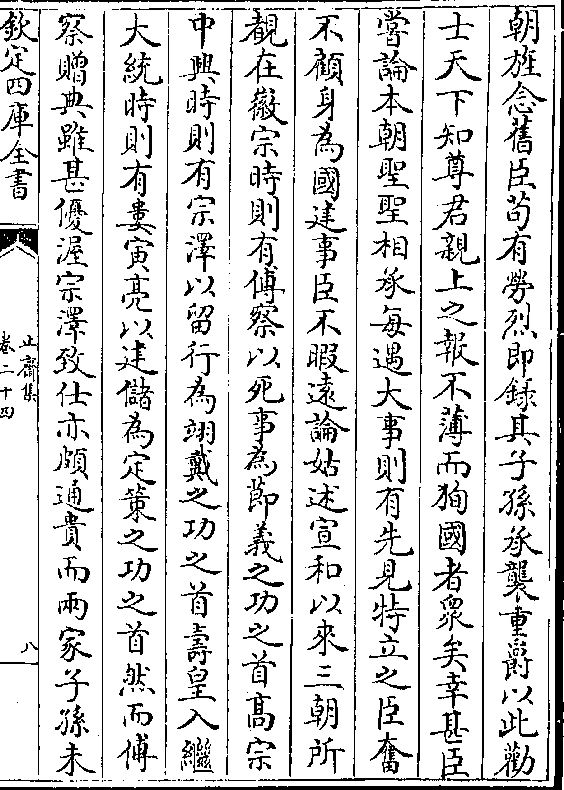 朝旌念舊臣苟有勞烈即録其子孫承襲重爵以此勸
士天下知尊君親上之報不薄而狥國者衆矣幸甚臣
嘗論本朝聖聖相承每遇大事則有先見特立之臣奮
不顧身為國達事臣不暇逺論姑述宣和以來三朝所
覩在徽宗時則有傅察以死事為節義之功之首髙宗
中興時則有宗澤以留行為翊戴之功之首壽皇入繼
大統時則有婁寅亮以建儲為定策之功之首然而傅
察贈典雖甚優渥宗澤致仕亦頗通貴而兩家子孫未
欽定四庫全書
止齋集
卷二十四
八